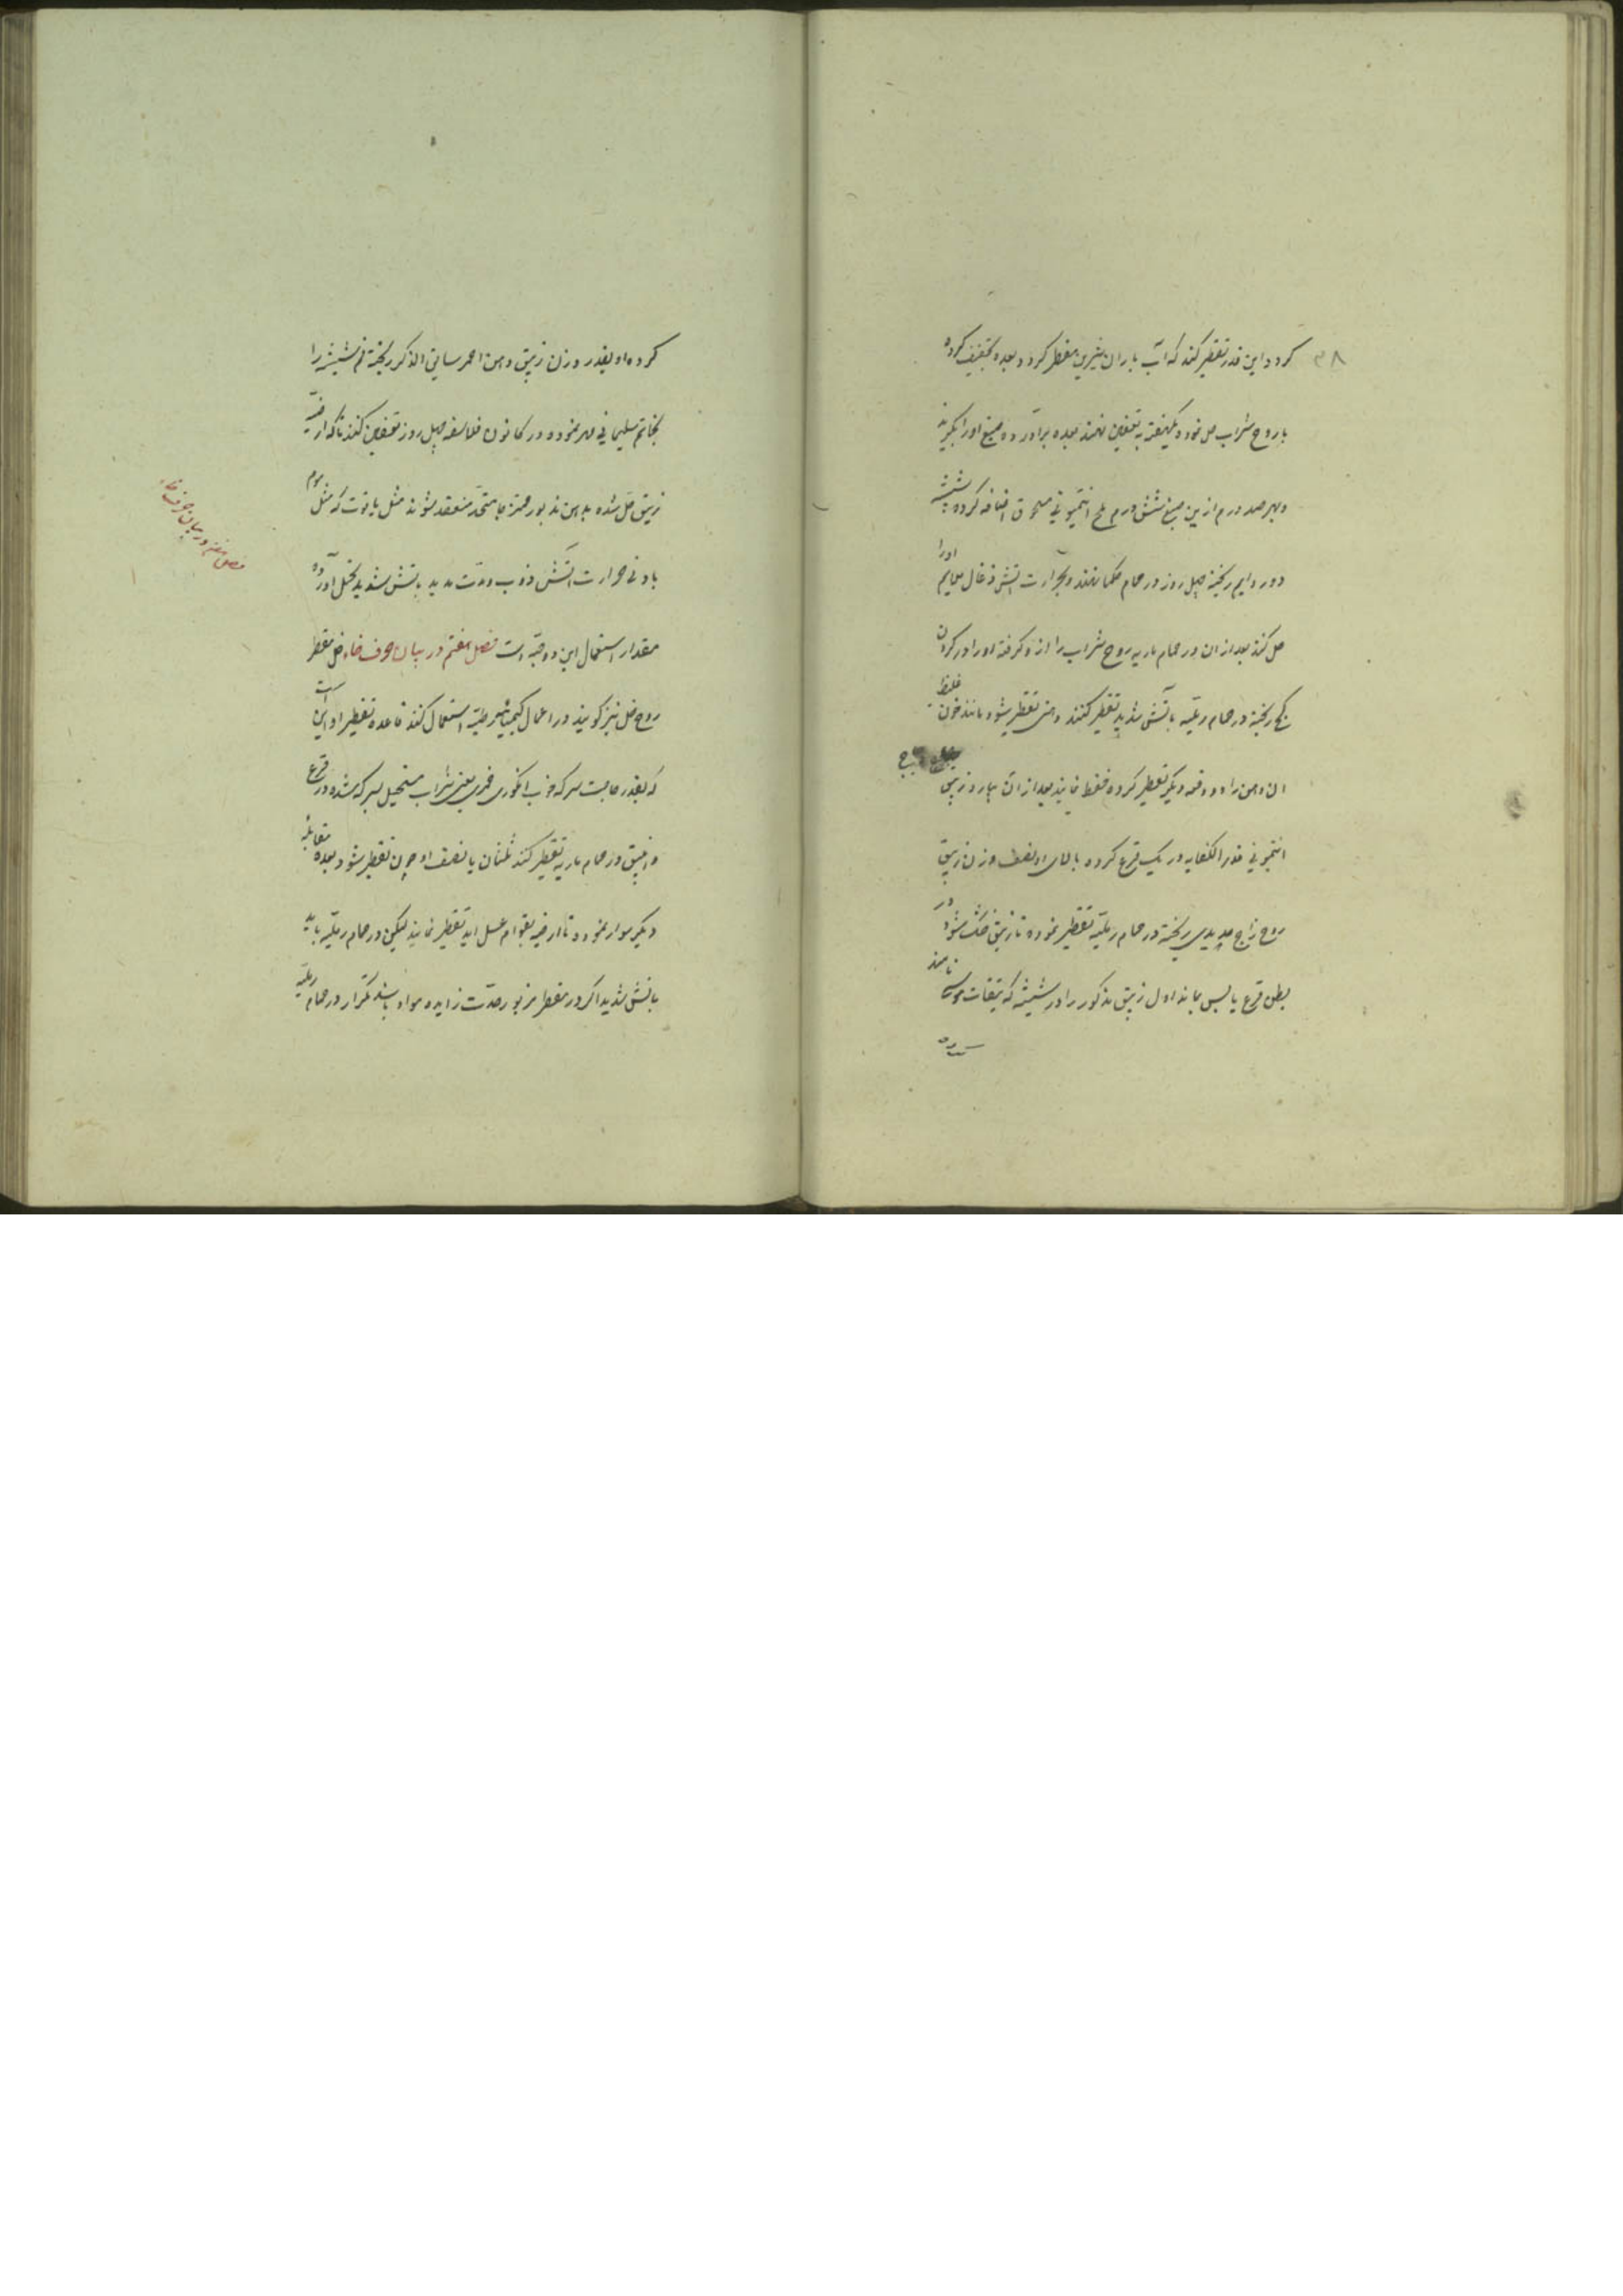 ۳۸
کردد این قدر تقطیر کنند که آب باران شیرین مقطر کردد بعده تجفیف کرده
با روح شراب حل نموده یکهفته به تعفین نهند بعده برآورده صبغ اورا بگیرند
و بهر صد درم ازین صبغ شش درم ملح انتیمونی مسحوق اضافه کرده بشیشه
دور دایم ریخته چهل روز در حمام حکما نهند و بحرارت اتش ذغال ملایم اورا
حل کنند بعد از ان در حمام ماریه روح شراب را ازو کرفته اورا در کردن
کج ریخته در حمام رملیه باتش شدید تقطیر کنند دهنی تقطیر شود مانند خون غلیظ
ان دهن را دو دفعه دیکر تقطیر کرده حفظ نمایند بعد از آن بیارد زیبق
انتیمونی قدر الکفایه در یک قرع کرده بالای او نصف وزن زیبق
روح زاج جدیدی ریخته در حمام رملیه تقطیر نموده تا زیبق خشک شود در
بطن قرع یابس بماند اول زیبق مذکور را در شیشه که نامند
کرده او بقدر وزن زیبق دهن احمر سابق الذکر ریخته فم شیشه را
بخاتم سلیمانی مهر نموده در کانون فلاسفه چهل روز تعفین کنند تا که ارضیه
زیبق حل شده با دهن مذبور ممتزجا متحد منعقد شوند مثل یاقوت که مثل موم
بادنی حرارت اتش ذوب و مدت مدید باتش شدید تحمل آورده
مقدار استعمال این دو حبه است فصل هفتم در بیان حرف خاء خل مقطر
روح خل نیز کویند در اعمال کیمیائیه طبیه استعمال کنند قاعده تقطیر او این است
که بقدر حاجت سرکه خوب انکوری خمری یعنی شراب مستحیل بسرکه شده در قرع
و انبیق در حمام ماریه تقطیر کنند ثلثان یا نصف او چون تقطیر شود بعده مقابله
دیکر سوار نموده تا ارضیه بقوام عسل اید تقطیر نمایند لیکن در حمام رملیه باید
باتش شدید اکر در مقطر مزبور حدت زایده مواد باشد تکرار در حمام رملیه
فصل هفتم در بیان حرف خاء